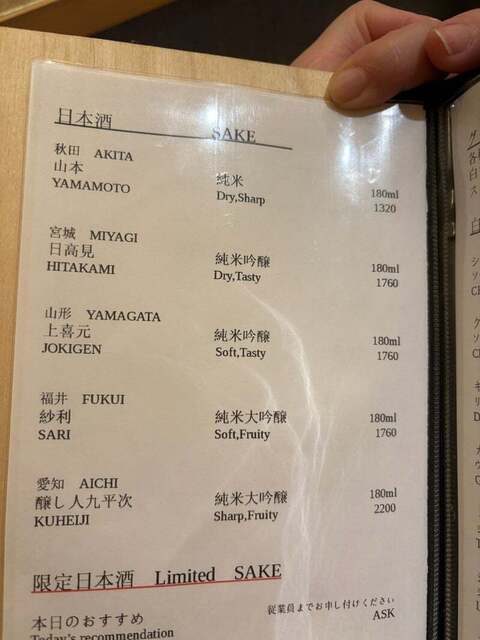 日本酒 SAKE
秋田 AKITA
山本
YAMAMOTO
純米
Dry,Sharp
180ml
1320
宮城 MIYAGI
日高見
HITAKAMI
純米吟醸
Dry,Tasty
180ml
1760
山形 YAMAGATA
上喜元
JOKIGEN
純米吟醸
Soft,Tasty
180ml
1760
福井 FUKUI
紗利
SARI
純米大吟醸
Soft,Fruity
180ml
1760
愛知 AICHI
醸し人九平次
KUHEIJI
純米大吟醸
Sharp,Fruity
180ml
2200
限定日本酒 Limited SAKE
本日のおすすめ
Today's recommendation
従業員までお申し付けください
ASK